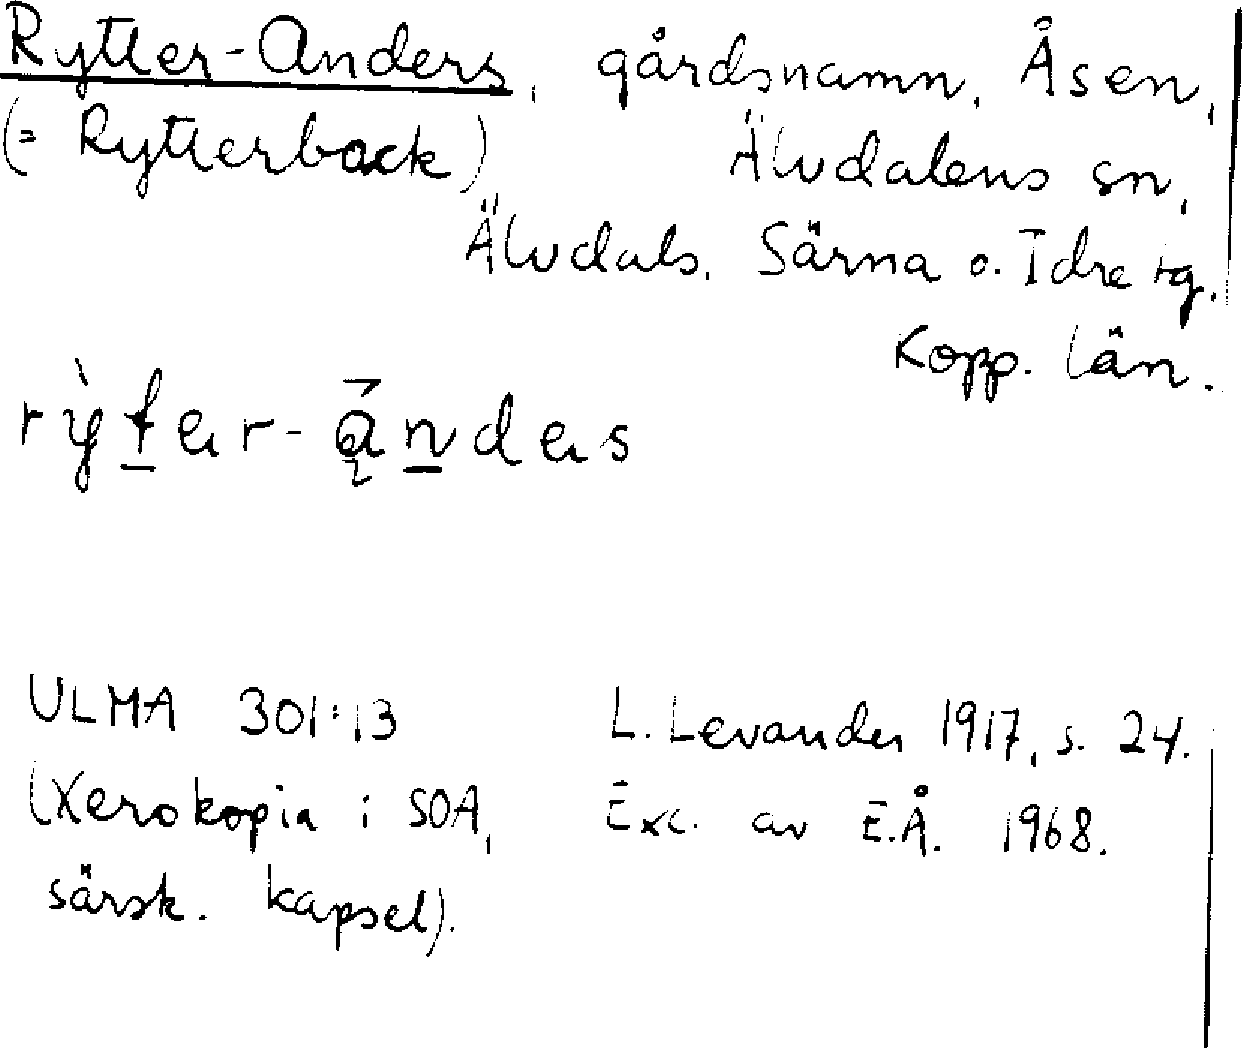 Rytter-Anders, gårdsnamn, Åsen,
(= Rytterback) Älvdalens sn,
Älvdals, Särna o. Idre tg,
Kopp. län.
rỳter-ą̄́ndes
ULMA 301:13 L. Levander 1917, s. 24.
(Xerokopia i SOA, Exc. av E.Å. 1968.
särsk. kapsel).